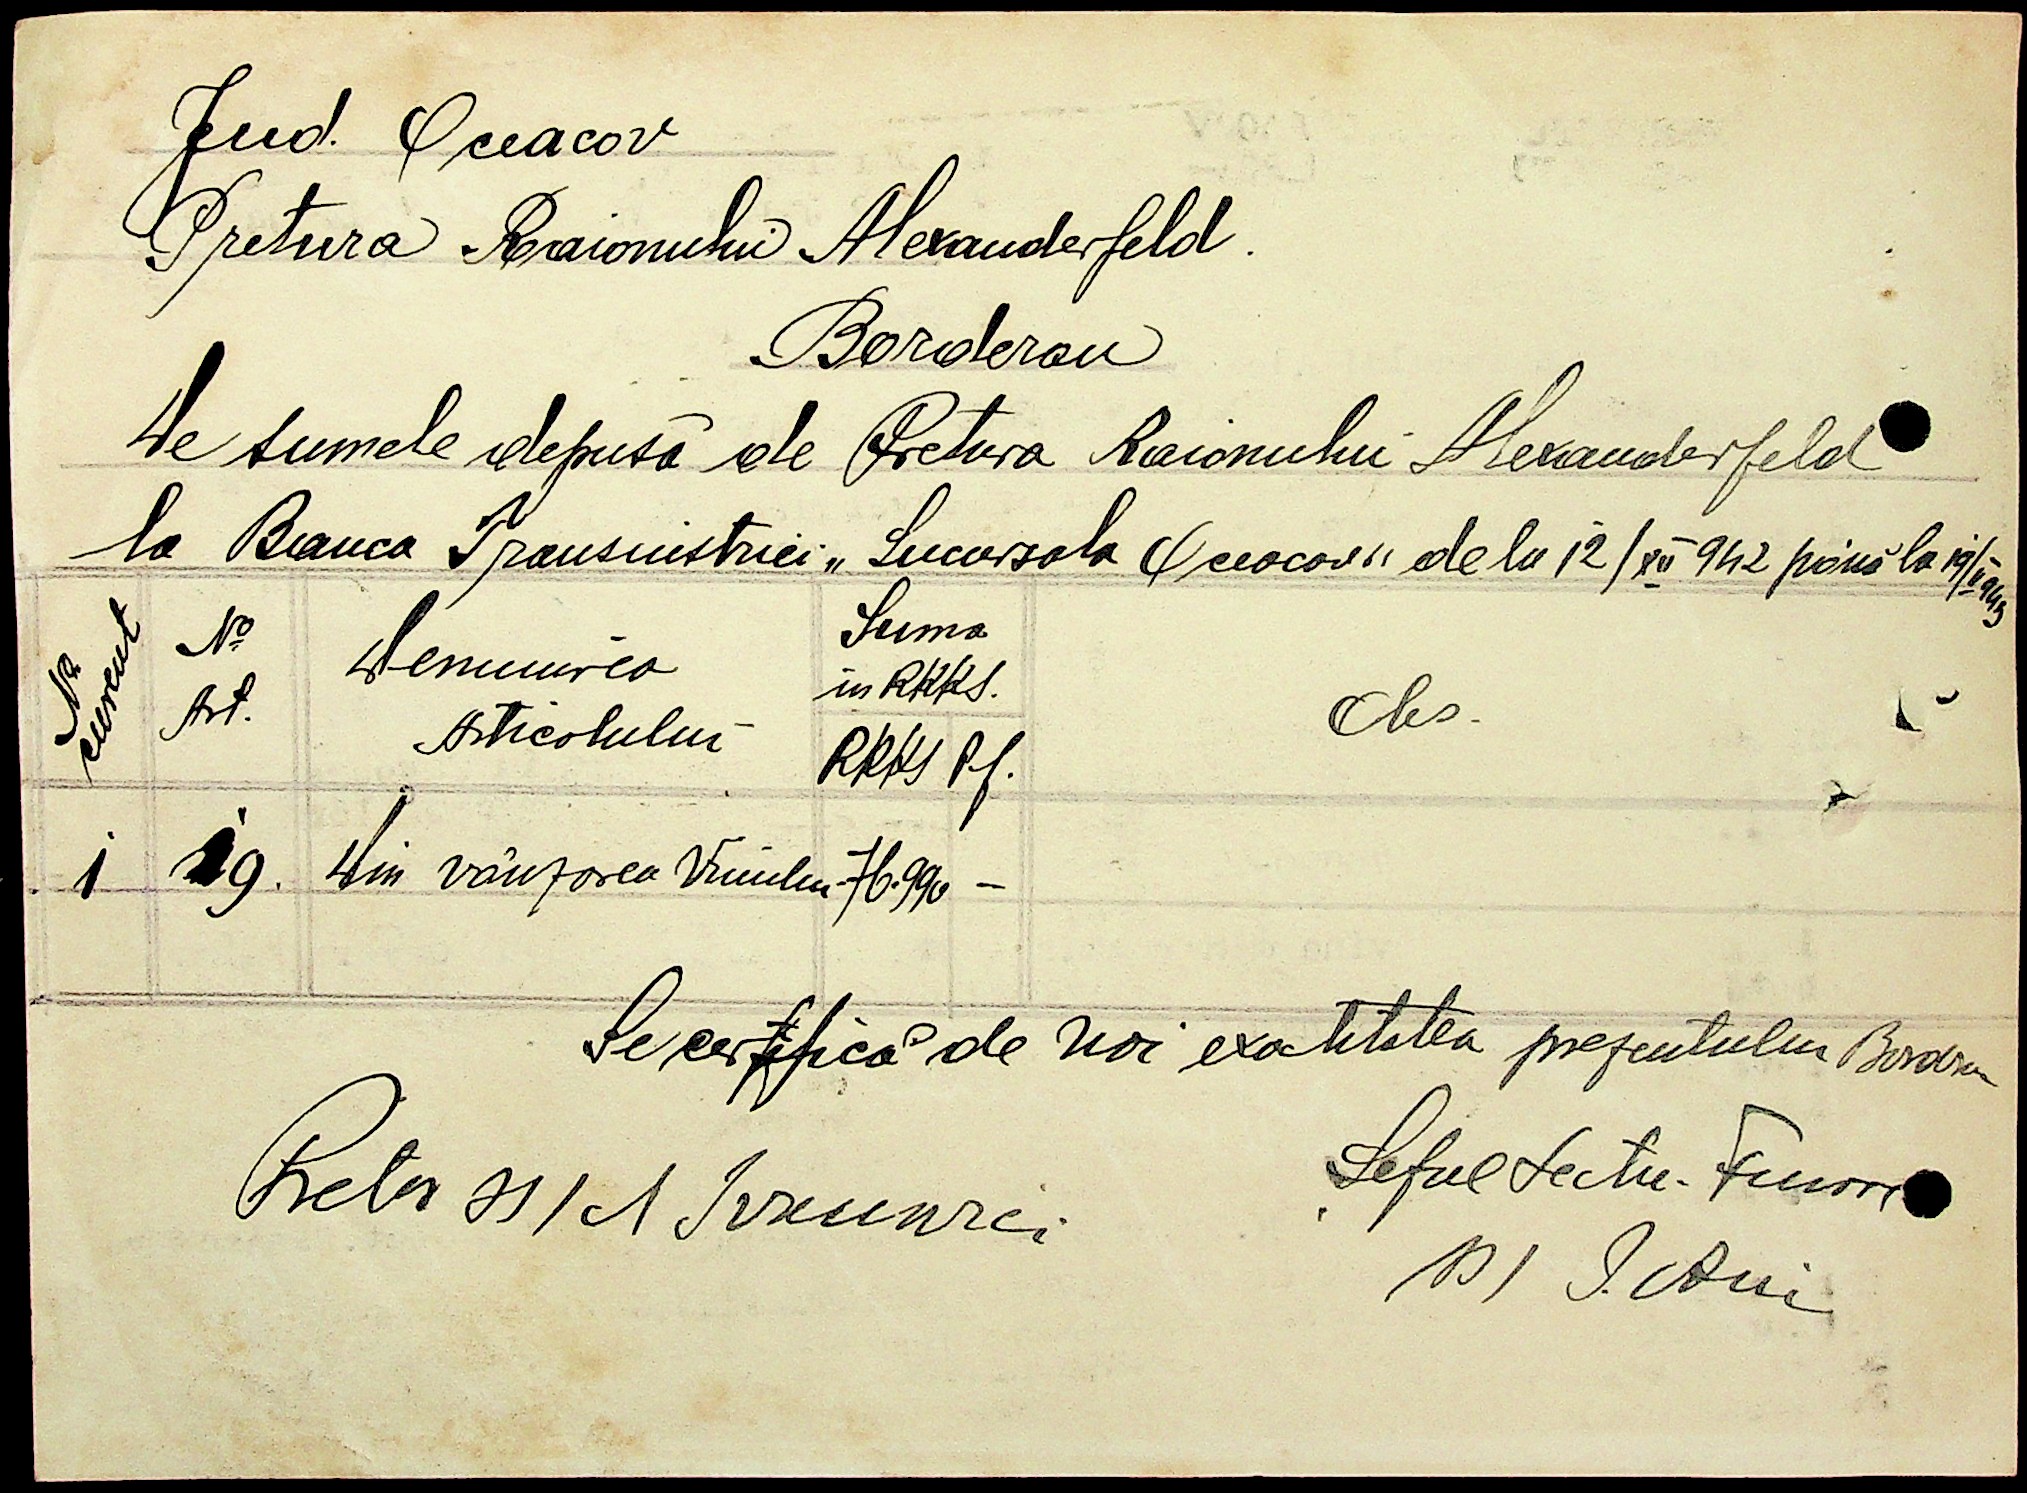 Jud. Oceacov
Pretura Raionului Alexanderfeld.
Borderou
De sumele depusă de Pretura Raionului Alexanderfeld
la Banca Transnistriei „Sucursala Oceacov" de la 12/XII 942 până la 19/I 943
No. curent
No Art.
Denumirea Articolului
Suma in RKKS.
RKKS Pf.
Obs.
1 19. Din vânzarea Vinului 76.990 -
Se certifică de noi exactitatea prezentului Borderou
Pretor SS/ A
Șeful Secției
SS/ I.